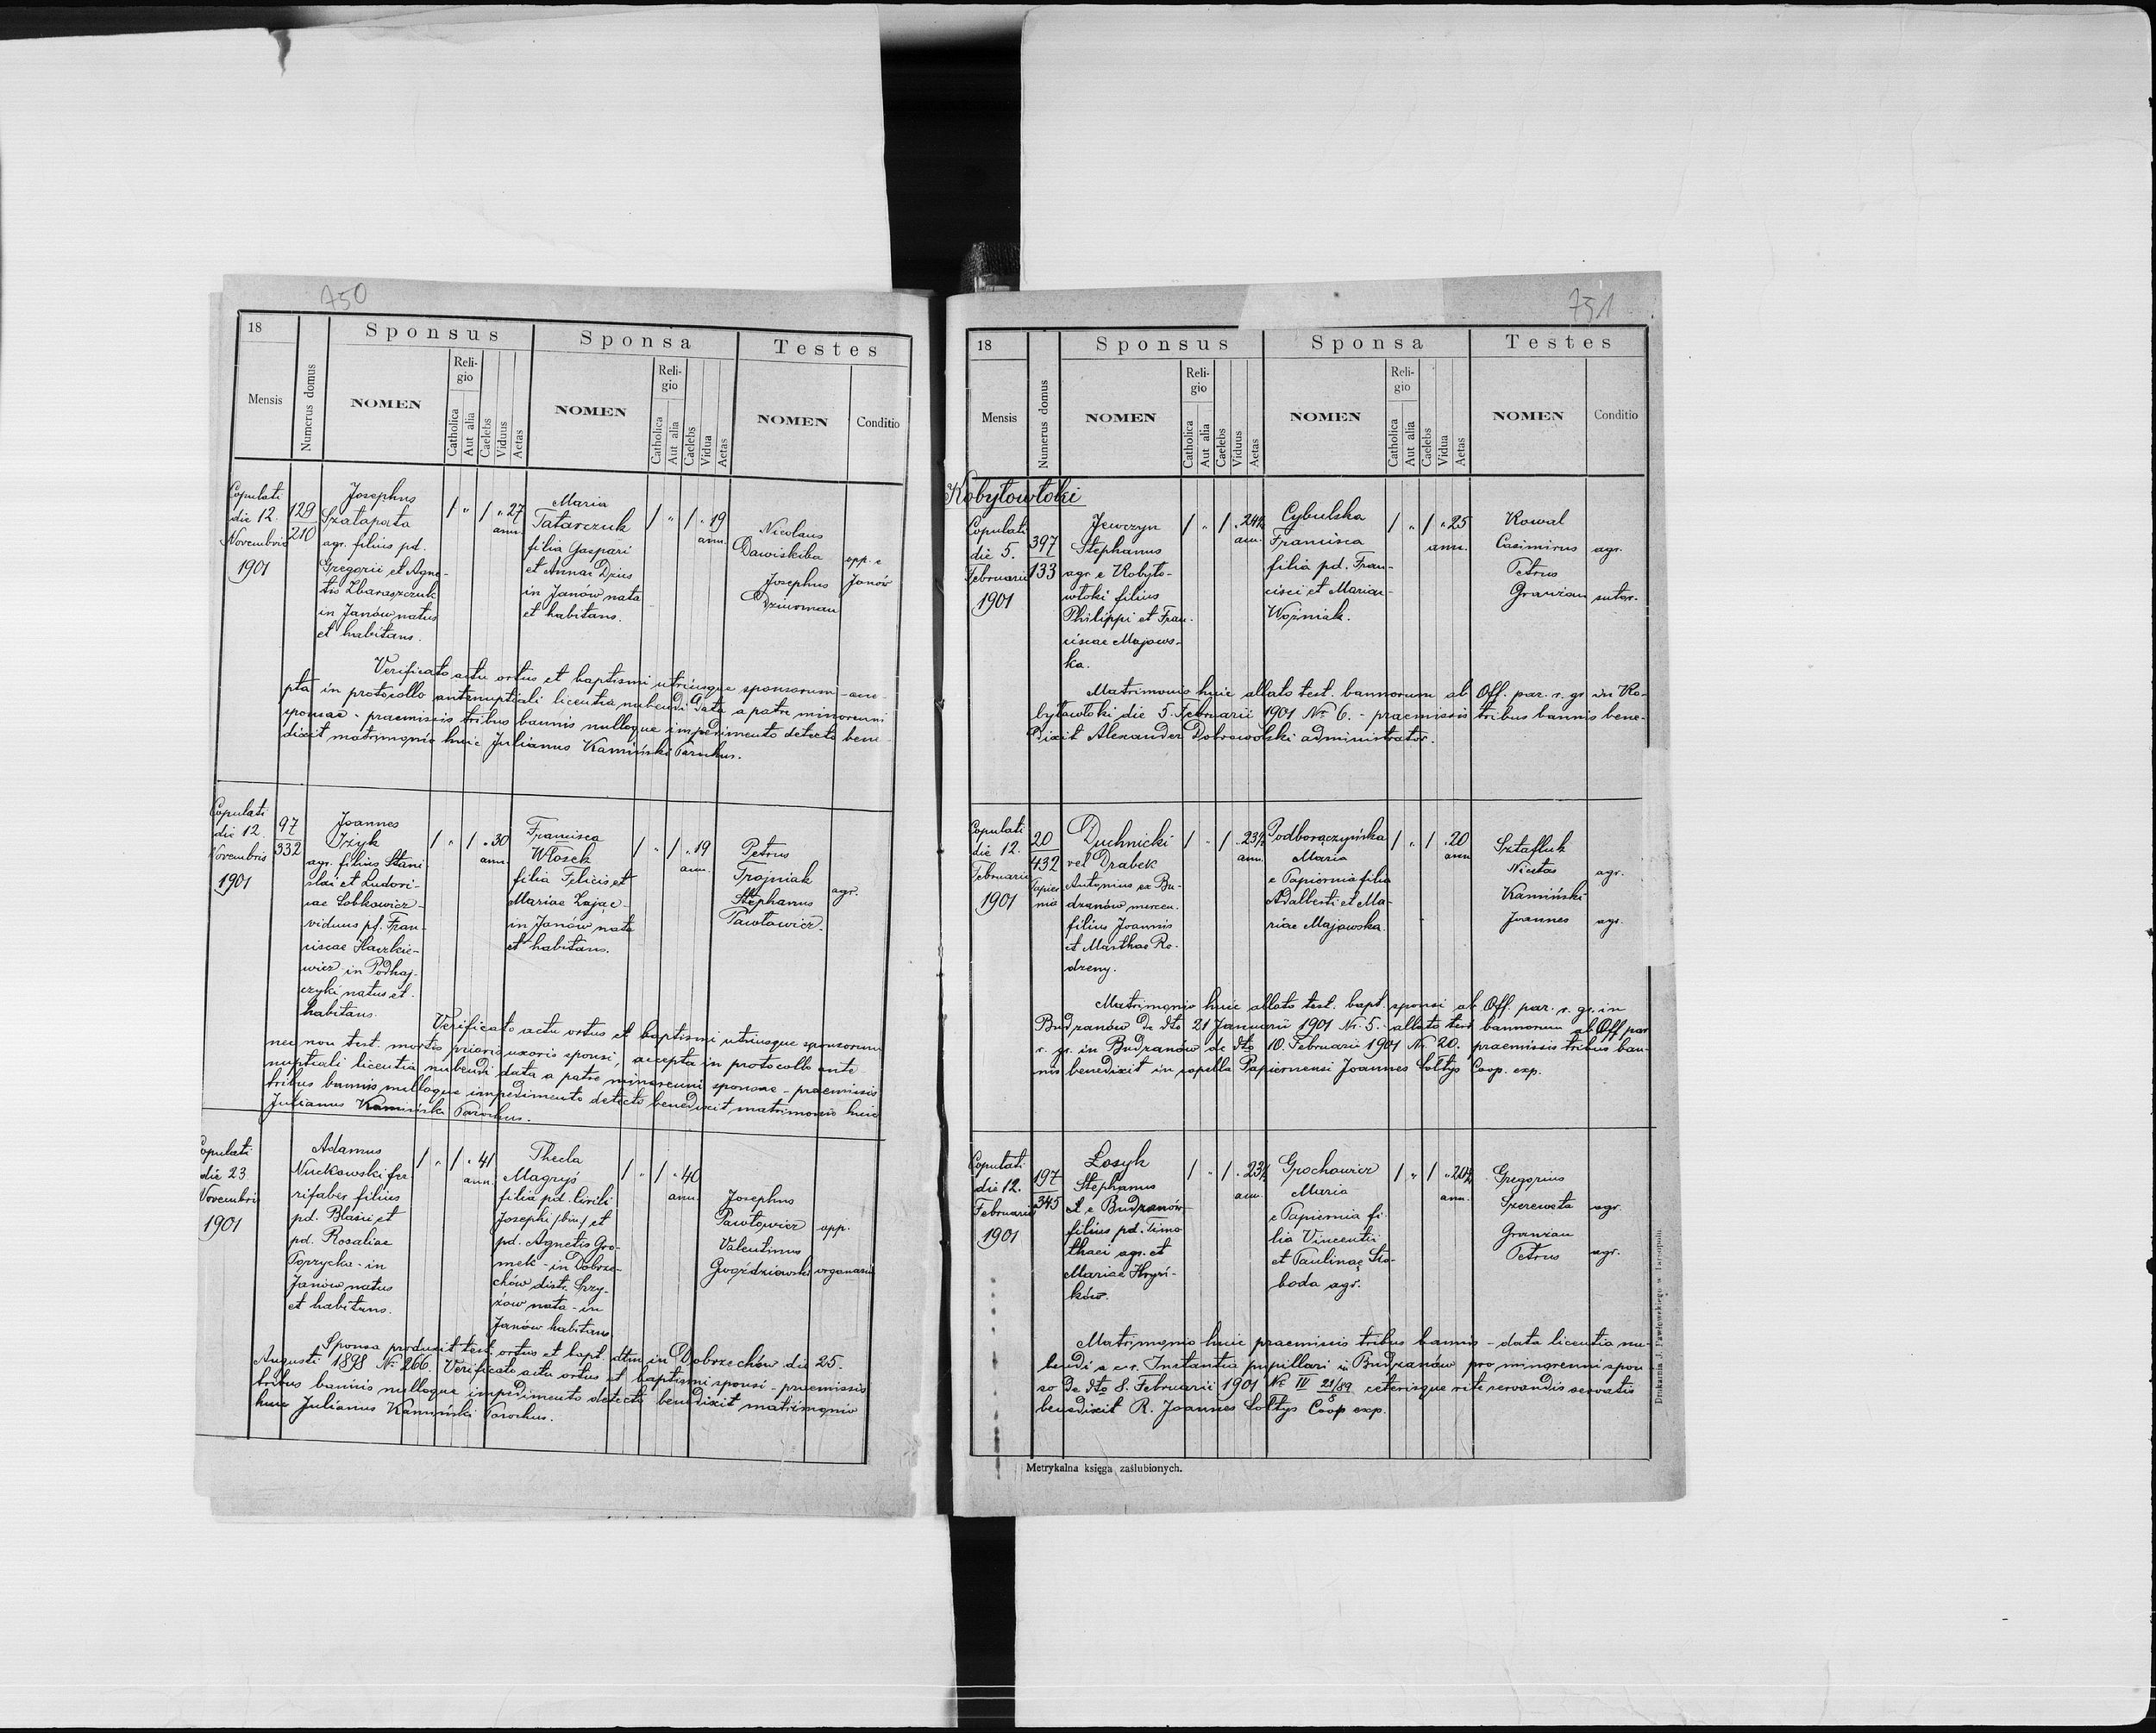 750
18
Sponsus
Sponsa
Testes
Mensis
Numerus domus
NOMEN
Religio
Catholica
Aut alia
Caelebs
Viduus
Aetas
NOMEN
Religio
Catholica
Aut alia
Caelebs
Vidua
Aetas
NOMEN
Conditio
Copulati
die 12.
Novembris
1901
129
210
Josephus
Szataparta
agr. filius pd.
Gregorii et Agne-
tis Zbaraszczuk
in Janów natus
et habitans.
1 " 1 " 27
ann.
Maria
Tatarczuk
filia Gaspari
et Annae Dzius
in Janów nata
et habitans.
1 " 1 " 19
ann.
Nicolaus
Dawiskiba
Josephus
Dziurman
opp. e
Janów
Verificato actu ortus et baptismi utriusque sponsorum - acce-
pta in protocollo antenuptiali licentia nubendi data a patre minorenni
sponsae - praemissis tribus bannis nulloque impedimento detecto bene-
dixit matrimonio huic Julianus Kamiński Parochus.
Copulati
die 12.
Novembris
1901
97
332
Joannes
Iżyk
agr. filius Stani
slai et Ludovi-
cae Sobkowicz -
viduus pf. Fran-
ciscae Hawzkie-
wicz in Podhaj-
czyki natus et
habitans.
1 " 1 " 30
ann.
Francisca
Włosek
filia Felicis et
Mariae Zając -
in Janów nata
et habitans.
1 " 1 " 19
ann.
Petrus
Trojniak
Stephanus
Pawłowicz.
agr.
Verificato actu ortus et baptismi utriusque sponsorum
nec non test. mortis prioris uxoris sponsi, accepta in protocollo ante
nuptiali licentia nubendi data a patre minorenni sponsae - praemissis
tribus bannis nulloque impedimento detecto benedixit matrimonio huic
Julianus Kamiński Parochus.
Copulati
die 23
Novembris
1901
Adamus
Nuckowski fer
rifaber filius
pd. Blasii et
pd. Rosaliae
Toprzycka - in
Janów natus
et habitans.
1 " 1 " 41
ann.
Thecla
Magryś
filia pd. Cirili
Josephi /bin/ et
pd. Agnetis Gro-
mek - in Dobrze-
chów distr. Strzy-
żów nata - in
Janów habitans
1 " 1 " 40
ann.
Josephus
Pawłowicz
Valentinus
Gwoździowski
opp.
organarius
Sponsa produxit test. ortus et bapt. dtm in Dobrzechów die 25.
Augusti 1898 No 266. Verificato actu ortus et baptismi sponsi - praemissis
tribus bannis nulloque impedimento detecto benedixit matrimonio
huic Julianus Kamiński Parochus.
751
18
Sponsus
Sponsa
Testes
Mensis
Numerus domus
NOMEN
Religio
Catholica
Aut alia
Caelebs
Viduus
Aetas
NOMEN
Religio
Catholica
Aut alia
Caelebs
Vidua
Aetas
NOMEN
Conditio
Kobyłowłoki
Copulati
die 5.
Februarii
1901
397
133
Jewczyn
Stephanus
agr. e Kobyło-
włoki filius
Philippi et Fran-
ciscae Majows-
ka.
1 " 1 " 24½
ann.
Cybulska
Francisca
filia pd. Fran-
cisci et Mariae
Woźniak.
1 " 1 " 25
ann.
Kowal
Casimirus
Petrus
Granzan
agr.
sutor.
Matrimonio huic allato test. bannorum ab Off. par. r. gr. in Ko-
byłowłoki die 5. Februarii 1901 No 6. - praemissis tribus bannis bene-
dixit Alexander Dobrowolski administrator.
Copulati
die 12.
Februarii
1901
20
432
Papier
nia
Duchnicki
vel Drabek
Antonius ex Bu-
dzanów mercen.
filius Joannis
et Marthae Ro-
dzeny.
1 " 1 " 23½
ann.
Podborączyńska
Maria
e Papiernia filia
Adalberti et Ma-
riae Majowska.
1 " 1 " 20
ann
Sztafluk
Nicetas
Kamiński
Joannes
agr.
agr.
Matrimonio huic allato test. bapt. sponsi ab Off. par. r. gr. in
Budzanów de dto 21 Januarii 1901 Nr. 5. - allato test. bannorum ab Off par
r. gr. in Budzanów de dto 10. Februarii 1901 No 20. praemissis tribus ban-
nis benedixit in capella Papiernensi Joannes Sołtys Coop. exp.
Copulati
die 12.
Februarii
1901
197
345
Losyk
Stephanus
et e Budzanów
filius pd. Timo
thaei agr. et
Mariae Hryń-
ków.
1 " 1 " 23½
ann.
Grochowicz
Maria
e Papiernia fi-
lia Vincentii
et Paulinae Sło-
boda agr.
1 " 1 " 20¾
ann.
Gregorius
Szereweta
Granzan
Petrus
agr.
agr.
Matrimonio huic praemissis tribus bannis - data licentia nu-
bendi a c. r. Instantia pupillari in Budzanów pro minorenni spon
so de dto 8. Februarii 1901 No IV 21/89 8 ceterisque rite servandis servatis
benedixit R. Joannes Sołtys Coop exp.
Metrykalna księga zaślubionych.
Drukarnia J. Pawłowskiego w Tarnopolu